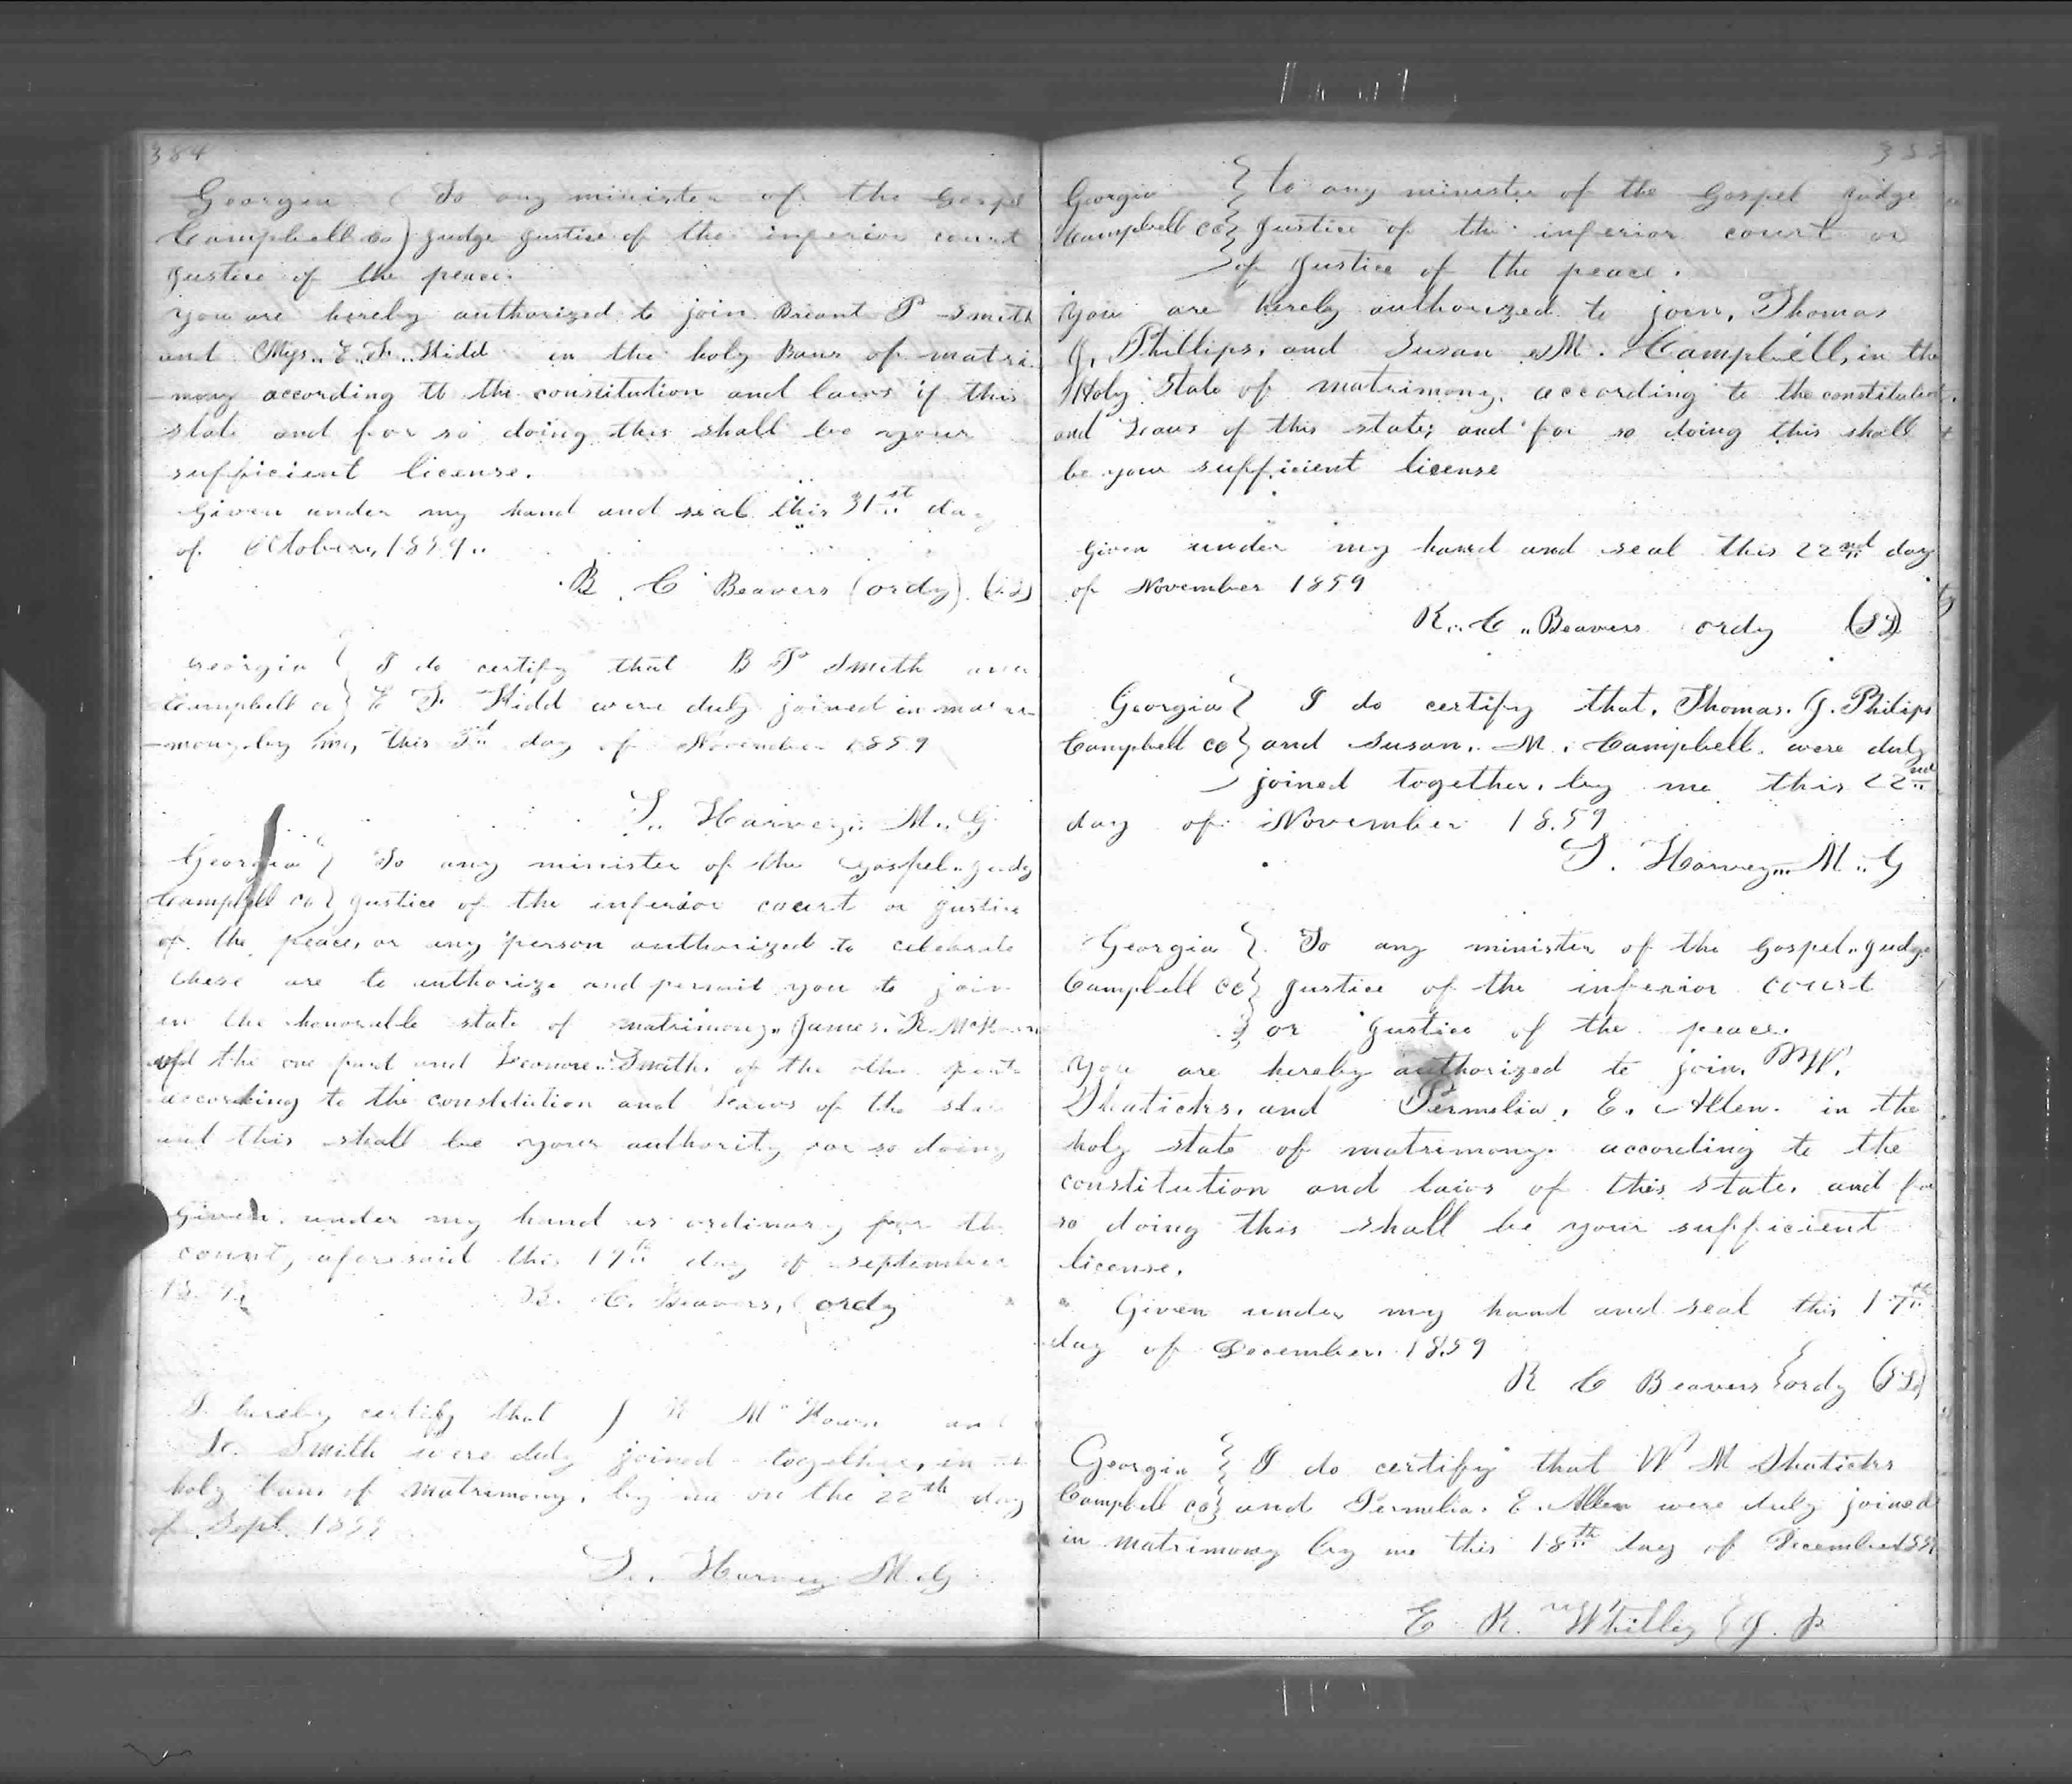 384
Georgia ( To any minister of the Gospel
Campbell Co ) Judge Justice of the inferior court
Justice of the peace.
You are hereby authorized to join Briant P Smith
and Mys. E. F. Kidd in the holy Bans of matri
-mony according to the constitution and laws if this
state and for so doing this shall be your
sufficient license.
Given under my hand and seal this 31st day
of October, 1859
R. C Beavers (ordy) (LS)
Georgia } I do certify that B P Smith and
Campbell co } E F. Kidd were duly joined in matri
-mony by me, this 3rd day of November 1859
S. Harvey. M. G
Georgia } To any minister of the Gospel. Judg
Campbell co } Justice of the inferior court or Justice
of the peace, or any person authorized to celebrate
these are to authorize and permit you to join
in the honorable state of matrimony. James. R. McKown
of the one part and Leonore Smith. of the other part
according to the constitution and Laws of the state
and this shall be your authority for so doing
Given. under my hand as ordinary for the
county aforesaid this 17th day of september
R. C. Beavers, ordy
I hereby certify that J R McKown and
L. Smith were duly joined together, in the
holy bans of matrimony, by me on the 22th day
of Sept. 1859
S. Harvey M. G
Georgia } to any minister of the Gospel Judge
Campbell co } Justice of the inferior court or
of Justice of the peace.
You are hereby authorized to join, Thomas
J, Phillips, and Susan M. Campbell, in the
Holy State of matrimony, according to the constitution
and Laws of this state; and for so doing this shall
be your sufficient license
Given under my hand and seal this 22nd day
of November 1859
R. C. Beavers ordy (LS)
Georgia } I do certify that, Thomas. J. Philips
Campbell co } and Susan. M. Campbell. were duly
joined together, by me this 22nd
day of November 1859
S. Harvey M. G
Georgia } To any minister of the Gospel. Judge
Campbell co } Justice of the inferior court
} or Justice of the peace.
You are hereby authorized to join, M W.
Shaticks, and Permelia, E. Allen. in the
holy state of matrimony. according to the
constitution and laws of this state, and for
so doing this shall be your sufficient
license.
Given under my hand and seal this 17th
day of December. 1859
R C Beavers } ordy (LS)
Georgia } I do certify that W M Shaticks
Campbell co } and Permelia. E. Allen were duly joined
in matrimony by me this 18th day of December 1859
E R. Whitley } J. P